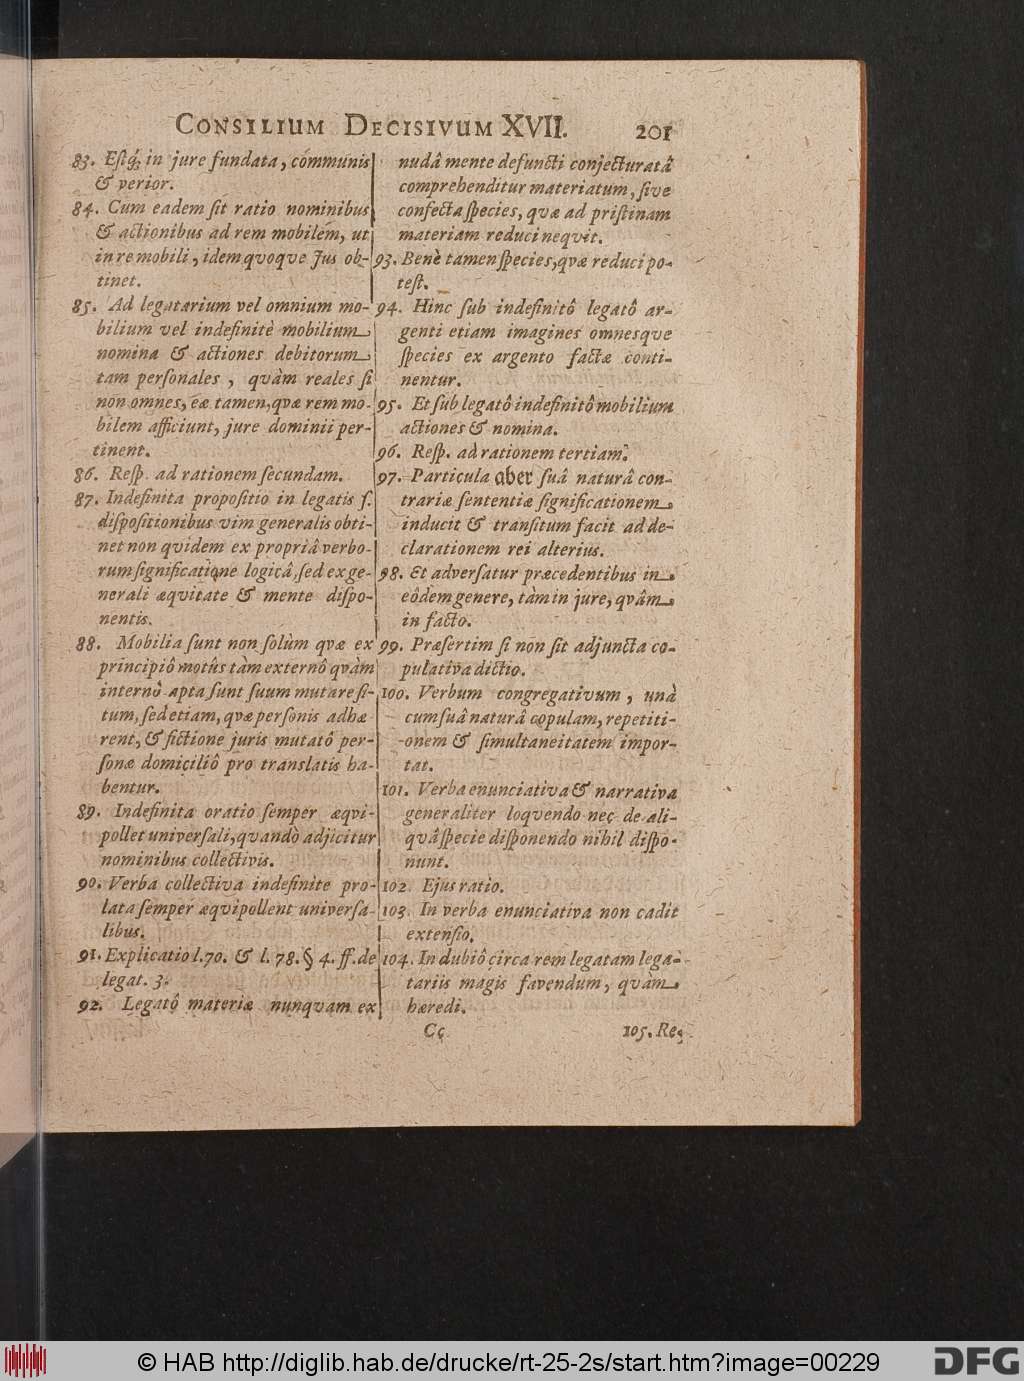 CONSILIUM DECISIVUM XVII. 201
83. Eſiq́; in jure fundata, communis
& verior.
84. Cum eadem ſit ratio nominibus
& actionibus ad rem mobilem, ut
in re mobili, idem quoque Jus ob-
tinet.
85. Ad legatarium vel omnium mo-
bilium vel indefinitè mobilium
nomina & actiones debitorum
tam perſonales, quàm reales ſi
non omnes, eæ tamen, qvæ rem mo-
bilem afficiunt, jure dominii per-
tinent.
86. Reſp. ad rationem ſecundam.
87. Indefinita propoſitio in legatis ſ.
diſpoſitionibus vim generalis obti-
net non qvidem ex propriâ verbo-
rum ſignificatione logicâ, ſed ex ge-
nerali æqvitate & mente diſpo-
nentis.
88. Mobilia ſunt non ſolùm qvæ ex
principiô motûs tàm externô qvàm
internô apta ſunt ſuum mutare ſi-
tum, ſed etiam, qvæ perſonis adhæ
rent, & fictione juris mutatô per-
ſonæ domiciliô pro translatis ha-
bentur.
89. Indefinita oratio ſemper æqvi-
pollet univerſali, qvandò adjicitur
nominibus collectivis.
90. Verba collectiva indefinite pro-
lata ſemper æqvipollent univerſa-
libus.
91. Explicatio l. 70. & l. 78. § 4. ff. de
legat. 3.
92. Legatô materiæ nunqvam ex
nudâ mente defuncti conjecturatâ
comprehenditur materiatum, ſive
confecta ſpecies, qvæ ad priſtinam
materiam reduci neqvit.
93. Benè tamen ſpecies, qvæ reduci po-
teſt.
94. Hinc ſub indefinitô legatô ar-
genti etiam imagines omnesqve
ſpecies ex argento factæ conti-
nentur.
95. Et ſub legatô indefinitô mobilium
actiones & nomina.
96. Reſp. ad rationem tertiam.
97. Particula aber ſuâ naturâ con-
trariæ ſententiæ ſignificationem
inducit & tranſitum facit ad de-
clarationem rei alterius.
98. Et adverſatur præcedentibus in
eôdem genere, tàm in jure, qvâm
in facto.
99. Præſertim ſi non ſit adjuncta co-
pulativa dictio.
100. Verbum congregativum, unà
cum ſuâ naturâ copulam, repetiti-
onem & ſimultaneitatem impor-
tat.
101. Verba enunciativa & narrativa
generaliter loqvendo nec de ali-
qvâ ſpecie diſponendo nihil diſpo-
nunt.
102. Ejus ratio.
103. In verba enunciativa non cadit
extenſio.
104. In dubiô circa rem legatam lega-
tariis magis favendum, qvàm
hæredi.
Cc 105. Re-
© HAB http://diglib.hab.de/drucke/rt-25-2s/start.htm?image=00229
DFG